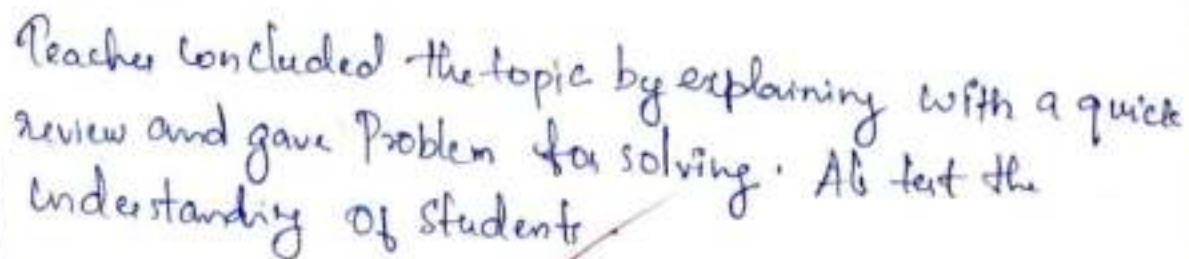 Teacher concluded the topic by explaining with a quick
review and gave Problem for solving. Als test the
understanding of students.